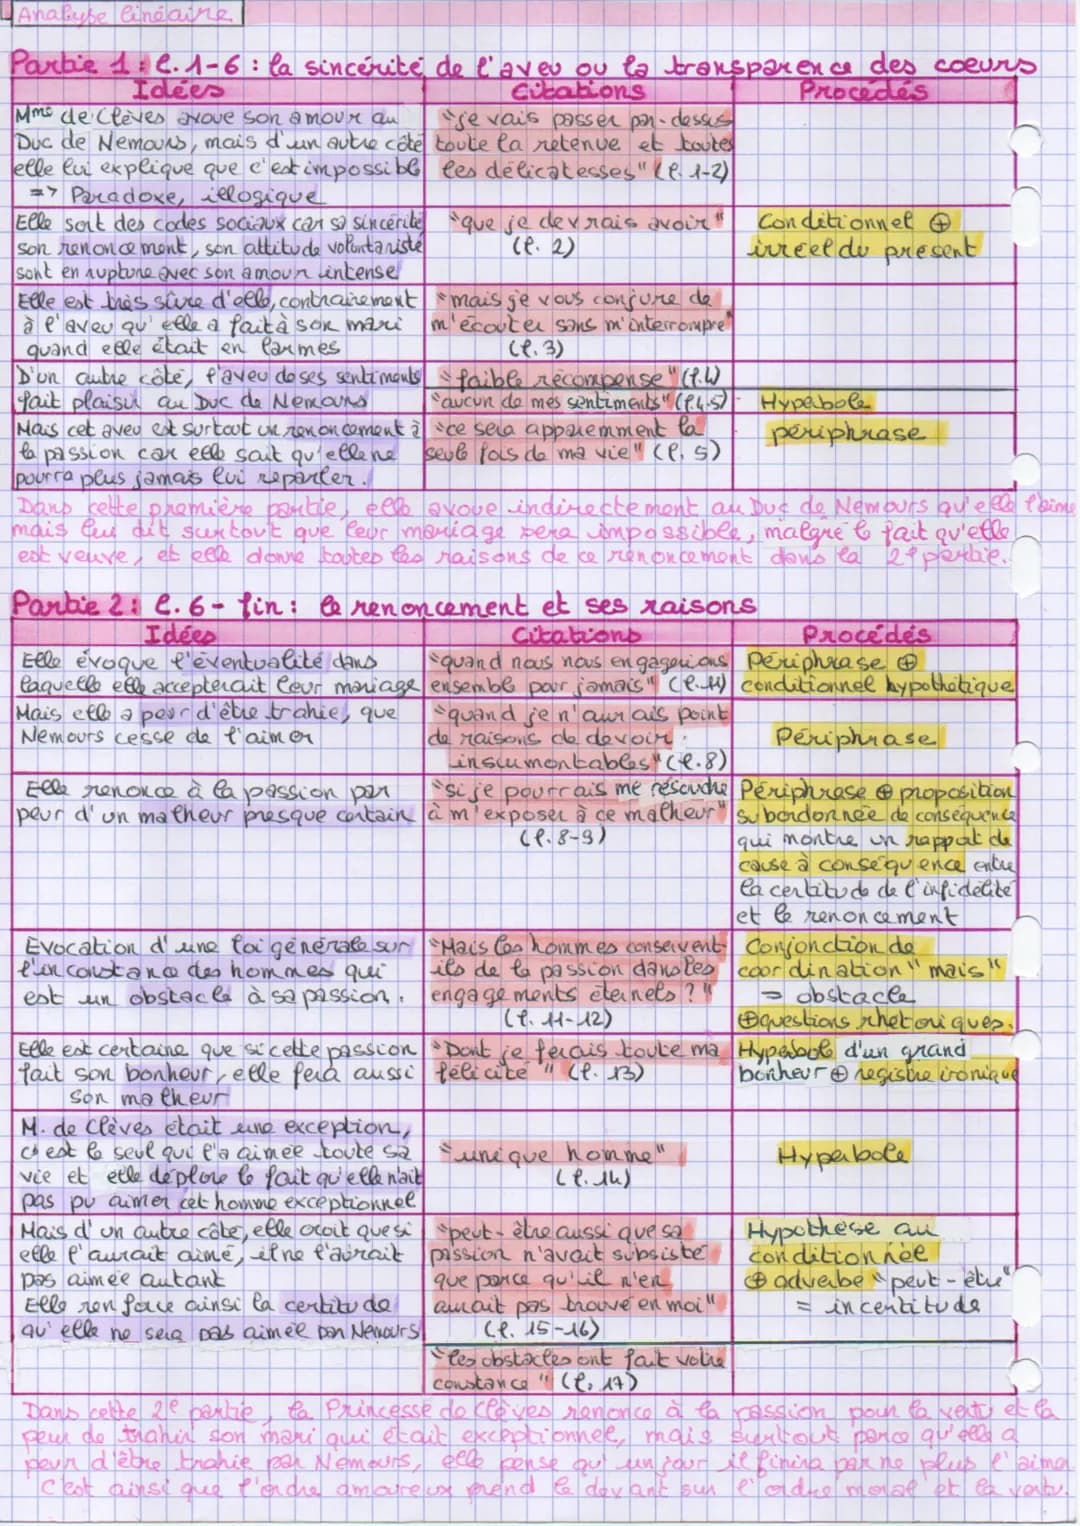 Analyse linéaire
Partie 1 : l. 1-6 : la sincérité de l'aveu ou la transparence des coeurs
Idées
Citations
Procédés
Mme de Clèves avoue son amour au
Duc de Nemours, mais d'un autre côté
elle lui explique que c'est impossible
=> Paradoxe, illogique
"je vais passer par-dessus
toute la retenue et toutes
les délicatesses" (l. 1-2)
Elle sort des codes sociaux car sa sincérité
son renoncement, son attitude volontariste
sont en rupture avec son amour intense
"que je devrais avoir"
(l. 2)
Conditionnel ⊕
irréel du présent
Elle est très sûre d'elle, contrairement
à l'aveu qu'elle a fait à son mari
quand elle était en larmes
"mais je vous conjure de
m'écouter sans m'interrompre"
(l. 3)
D'un autre côté, l'aveu de ses sentiments
fait plaisir au Duc de Nemours
Mais cet aveu est surtout un renoncement à
la passion car elle sait qu'elle ne
pourra plus jamais lui reparler.
"faible récompense" (l.4)
"aucun de mes sentiments" (l.4-5)
"ce sera apparemment la
seule fois de ma vie" (l. 5)
Hyperbole
périphrase
Dans cette première partie, elle avoue indirectement au Duc de Nemours qu'elle l'aime
mais lui dit surtout que leur mariage sera impossible, malgré le fait qu'elle
est veuve, et elle donne toutes les raisons de ce renoncement dans la 2e partie.
Partie 2 : l. 6 - fin : le renoncement et ses raisons
Idées
Citations
Procédés
Elle évoque l'éventualité dans
laquelle elle accepterait leur mariage
"quand nous nous engagerions
ensemble pour jamais" (l. 11)
Périphrase ⊕
conditionnel hypothétique
Mais elle a peur d'être trahie, que
Nemours cesse de l'aimer
"quand je n'aurais point
de raisons de devoir
insurmontables" (l. 8)
Périphrase
Elle renonce à la passion par
peur d'un malheur presque certain
"si je pourrais me résoudre
à m'exposer à ce malheur"
(l. 8-9)
Périphrase ⊕ proposition
subordonnée de conséquence
qui montre un rapport de
cause à conséquence entre
la certitude de l'infidélité
et le renoncement
Evocation d'une loi générale sur
l'inconstance des hommes qui
est un obstacle à sa passion.
"Mais les hommes conservent-
ils de la passion dans les
engagements éternels ?"
(l. 11-12)
Conjonction de
coordination "mais"
= obstacle
⊕ questions rhétoriques.
Elle est certaine que si cette passion
fait son bonheur, elle fera aussi
son malheur
"Dont je ferais toute ma
félicité" (l. 13)
Hyperbole d'un grand
bonheur ⊕ registre ironique
M. de Clèves était une exception,
c'est le seul qui l'a aimée toute sa
vie et elle déplore le fait qu'elle n'ait
pas pu aimer cet homme exceptionnel
"unique homme"
(l. 14)
Hyperbole
Mais d'un autre côté, elle croit que si
elle l'aurait aimé, il ne l'aurait
pas aimée autant
Elle renforce ainsi la certitude
qu'elle ne sera pas aimée par Nemours
"peut-être aussi que sa
passion n'avait subsisté
que parce qu'il n'en
aurait pas trouvé en moi"
(l. 15-16)
Hypothèse au
conditionnel
⊕ adverbe "peut-être"
= incertitude
"les obstacles ont fait votre
constance" (l. 17)
Dans cette 2e partie, la Princesse de Clèves renonce à la passion pour la vertu et la
peur de trahir son mari qui était exceptionnel, mais surtout parce qu'elle a
peur d'être trahie par Nemours, elle pense qu'un jour il finira par ne plus l'aimer
C'est ainsi que l'ordre amoureux prend le devant sur l'ordre moral et la vertu.